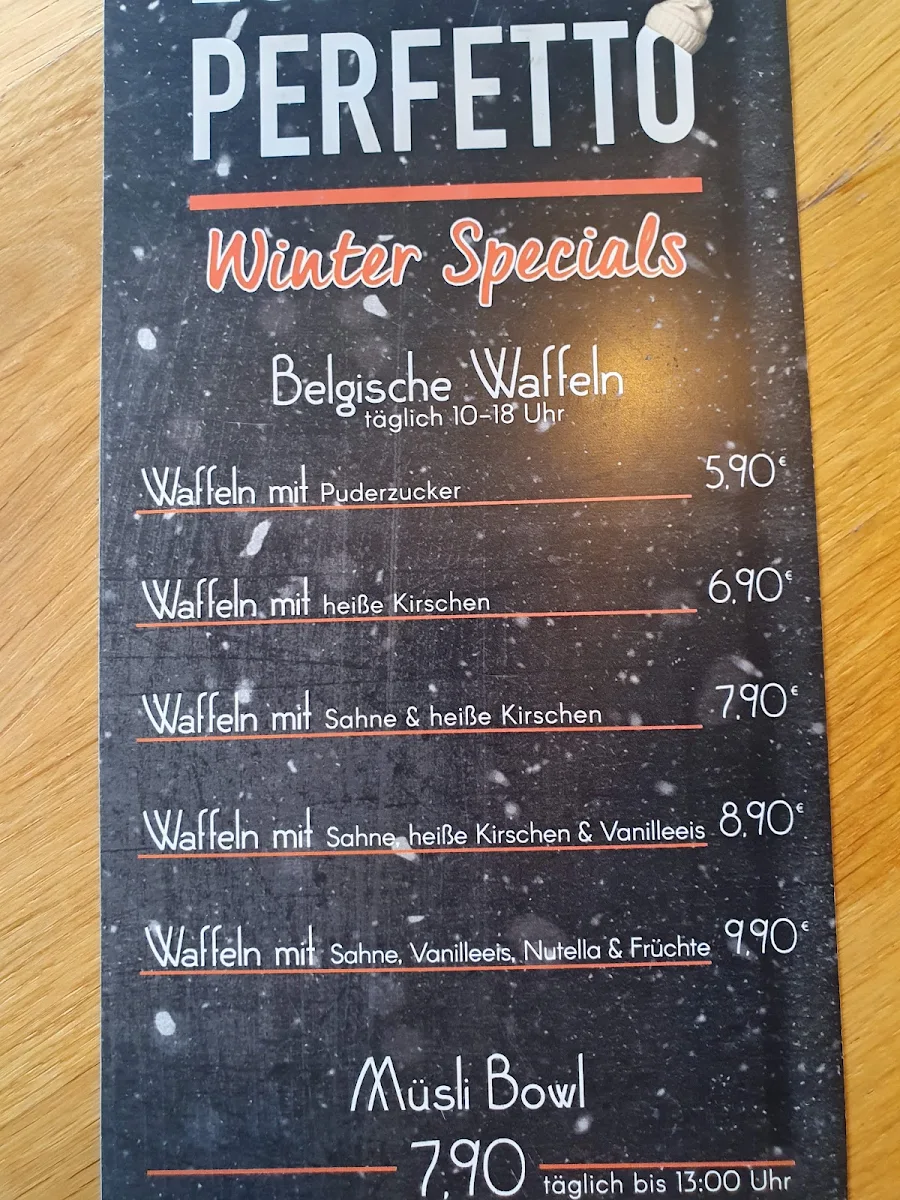 PERFETTO
Winter Specials
Belgische Waffeln
täglich 10-18 Uhr
Waffeln mit Puderzucker 5,90€
Waffeln mit heiße Kirschen 6,90€
Waffeln mit Sahne & heiße Kirschen 7,90€
Waffeln mit Sahne, heiße Kirschen & Vanilleeis 8,90€
Waffeln mit Sahne, Vanilleeis, Nutella & Früchte 9,90€
Müsli Bowl
7,90 täglich bis 13:00 Uhr